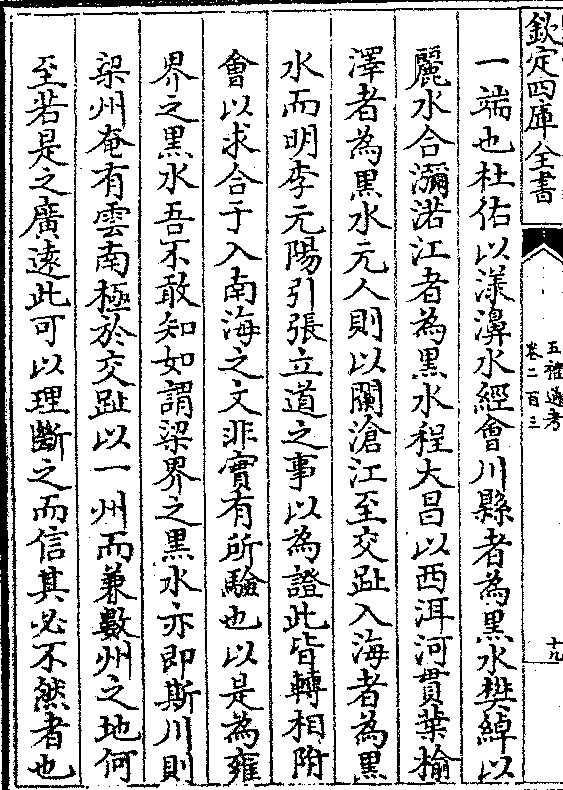 欽定四庫全書
五禮通考
卷二百三
十九
一端也杜佑以漾濞水經會川縣者為黑水樊綽以
麗水合瀰渃江者為黑水程大昌以西洱河貫葉榆
澤者為黑水元人則以闌滄江至交趾入海者為黑
水而明李元陽引張立道之事以為證此皆轉相附
會以求合于入南海之文非實有所驗也以是為雍
界之黑水吾不敢知如謂梁界之黑水亦即斯川則
梁州奄有雲南極於交趾以一州而兼數州之地何
至若是之廣逺此可以理斷之而信其必不然者也